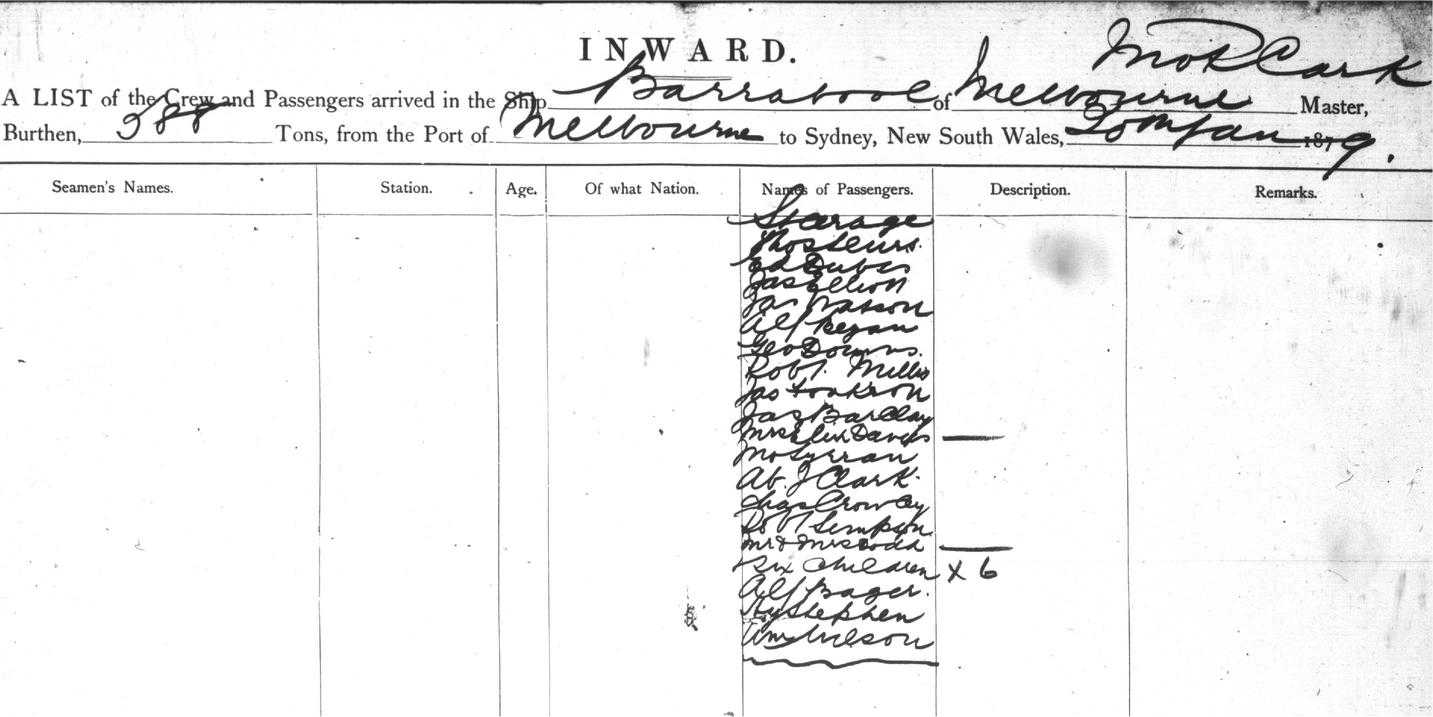 INWARD.
Jno P Clark
A LIST of the Crew and Passengers arrived in the Ship Barrabool of Melbourne Master,
Burthen, 388 Tons, from the Port of Melbourne to Sydney, New South Wales, Jan 1879.
Seamen's Names. Station. Age. Of what Nation. Names of Passengers. Description. Remarks.
Stearage
Thos
Ed
Jas Elliott
Jas Watson
Alf Regan
Geo Downs.
Robt. Mills
Jas
Jas Barclay
Mrs Davies —
Ab. J Clark.
Chas Crowley
Robt Simpson
Mr & Mrs —
Six Children x 6
Alf Bager.
Hy Stephen
Wm Wilson